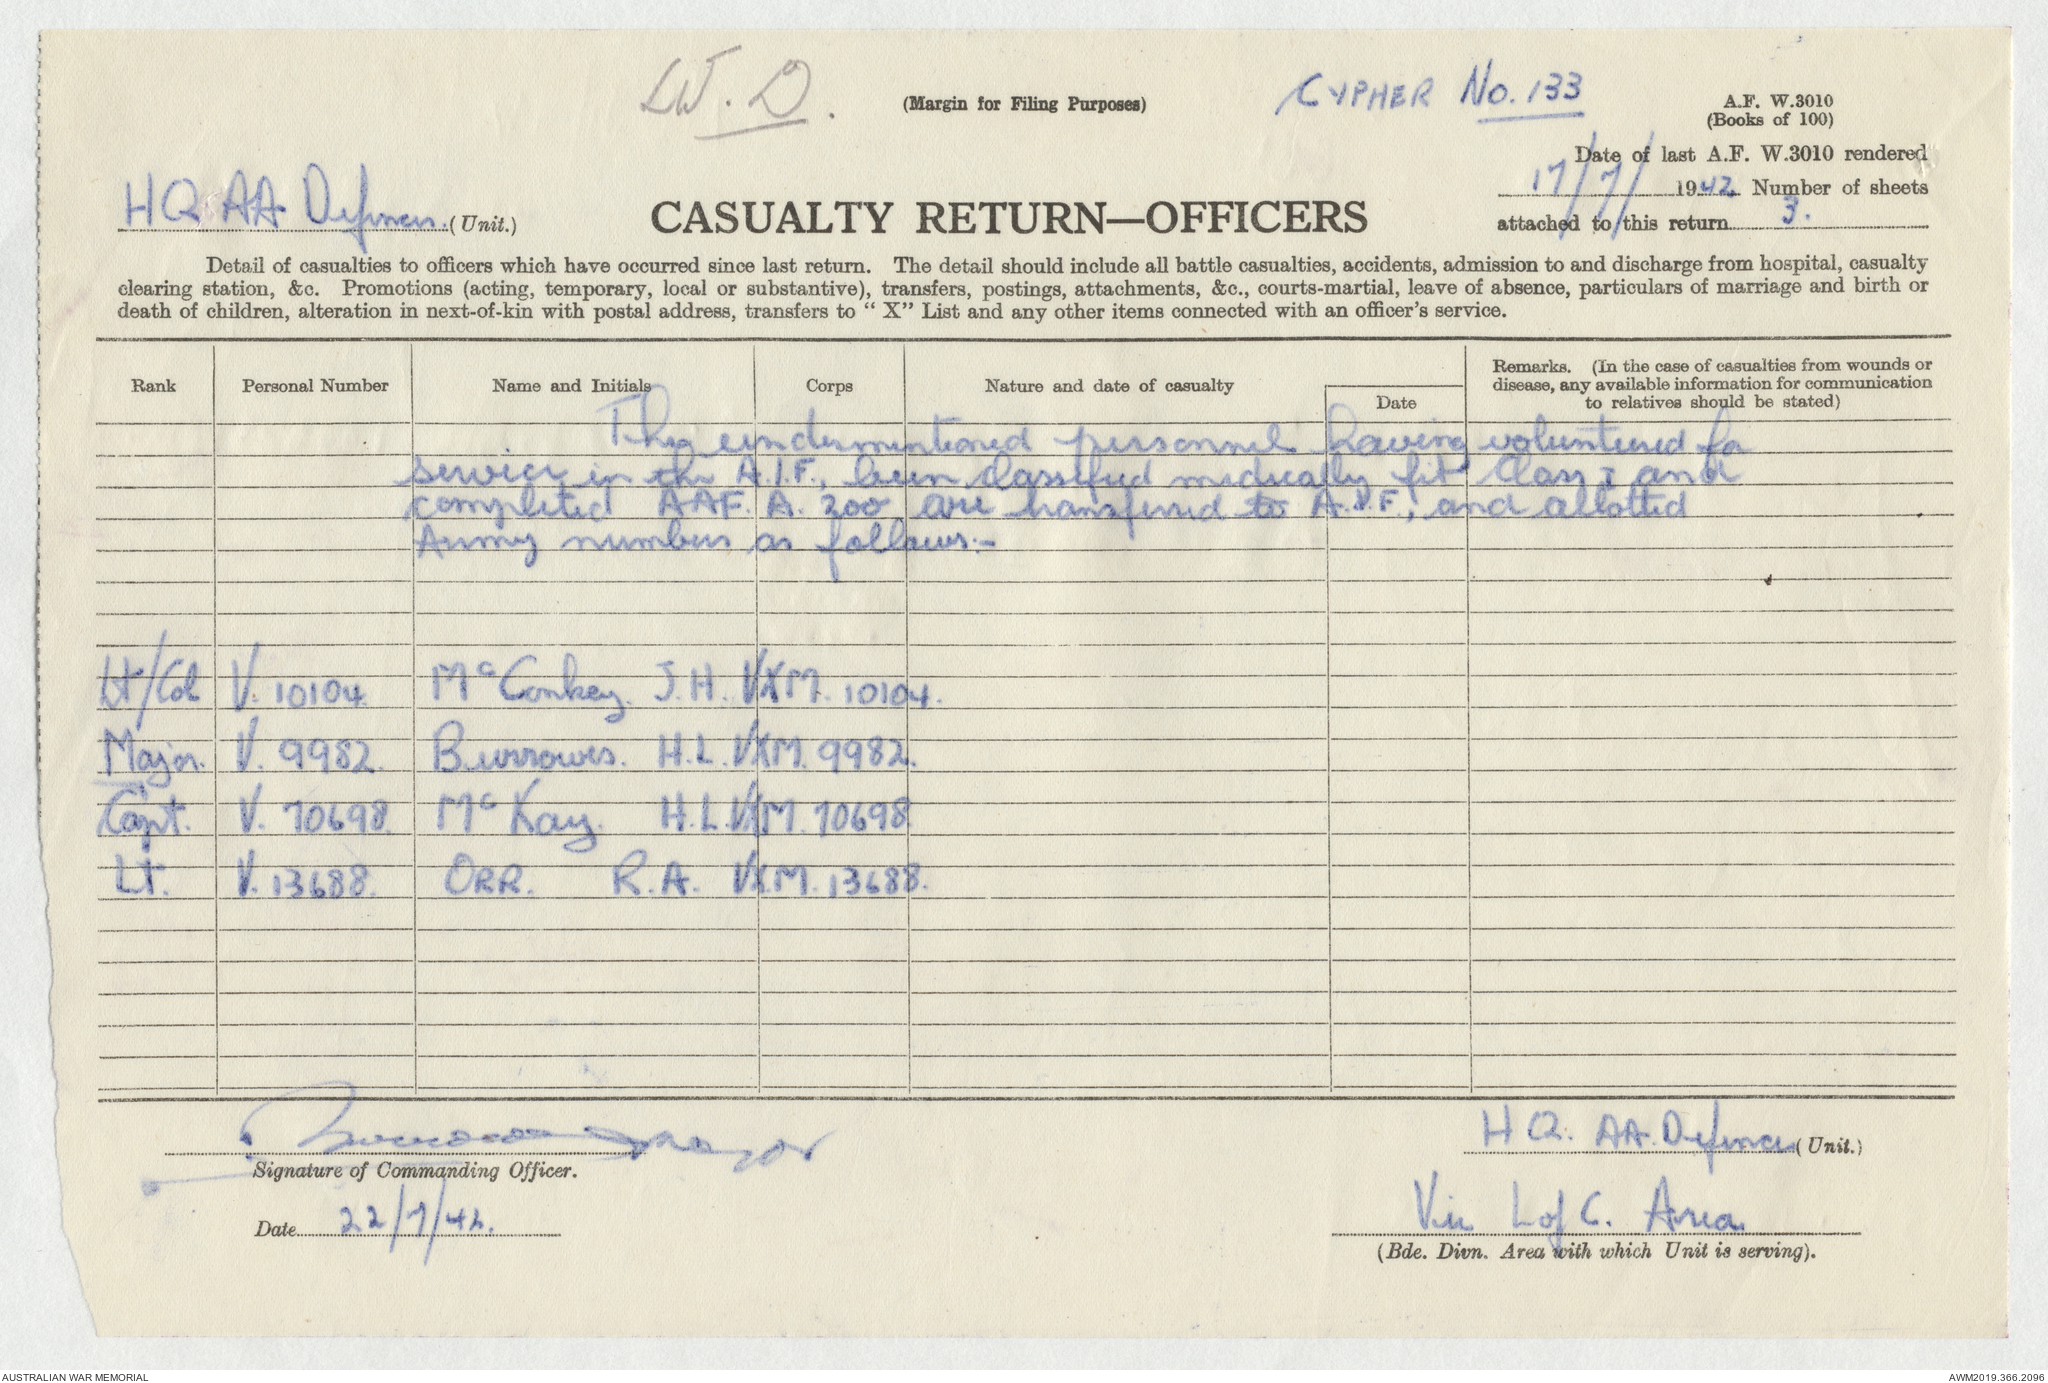 W.D.
(Margin for Filing Purposes)
CYPHER No. 133
A.F. W.3010
(Books of 100)
Date of last A.F. W.3010 rendered
17/7/1942 Number of sheets
attached to this return 3.
HQ AA Defences (Unit.)
CASUALTY RETURN—OFFICERS
Detail of casualties to officers which have occurred since last return. The detail should include all battle casualties, accidents, admission to and discharge from hospital, casualty
clearing station, &c. Promotions (acting, temporary, local or substantive), transfers, postings, attachments, &c., courts-martial, leave of absence, particulars of marriage and birth or
death of children, alteration in next-of-kin with postal address, transfers to “ X” List and any other items connected with an officer's service.
Rank Personal Number Name and Initials Corps Nature and date of casualty Date
Remarks. (In the case of casualties from wounds or
disease, any available information for communication
to relatives should be stated)
The undermentioned personnel having voluntered for
service in the A.I.F., been classified medically fit Class I and
completed AAF. A. 200 are transferred to A.I.F., and allotted
Army numbers as follows:-
Lt/Col V. 10104 McConkey. J.H. VXM. 10104.
Major. V. 9982. Burrowes. H.L. VXM. 9982.
Capt. V. 70698 McKay. H.L. VXM. 70698
Lt. V. 13688. ORR. R.A. VXM. 13688.
Major
Signature of Commanding Officer.
Date 22/7/42.
HQ. AA. Defences (Unit.)
Vic L of C. Area
(Bde. Divn. Area with which Unit is serving).
AUSTRALIAN WAR MEMORIAL
AWM2019.366.2096